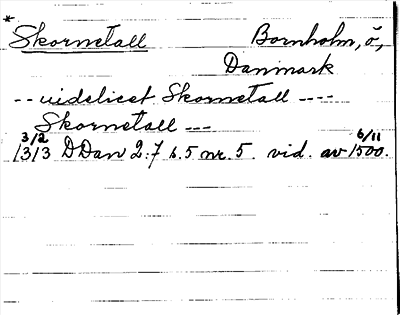 * Skornetall Bornholm, ö,
Danmark
-- videlicet Skornetall ----
Skornetall ---
3/2 6/11
1313 DDan 2:7 s.5 nr. 5. vid. av 1500.